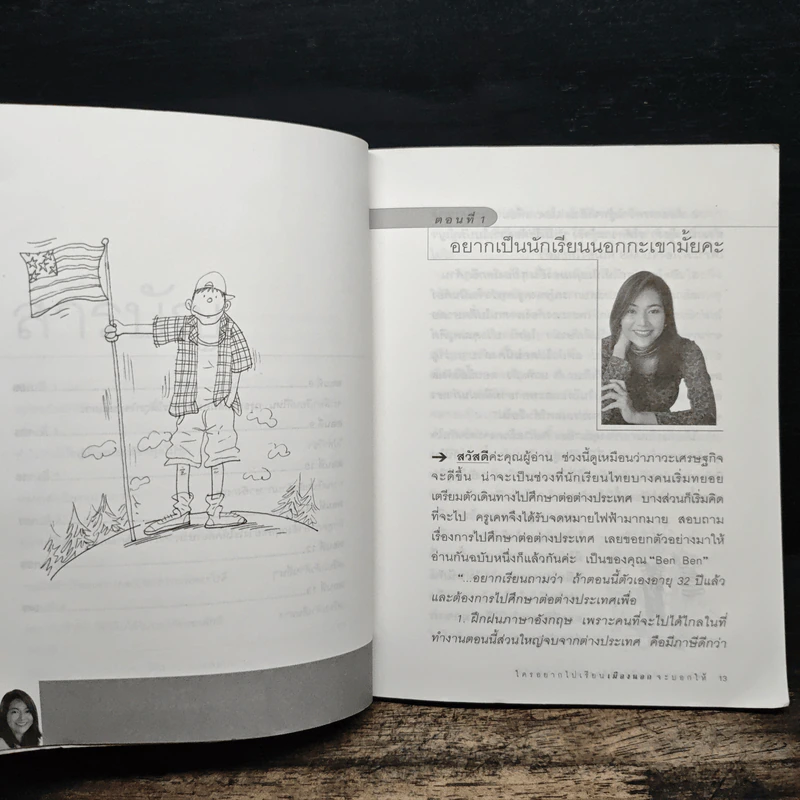 ตอนที่ 1
อยากเป็นนักเรียนนอกกะเขามั้ยคะ
➔ สวัสดีค่ะคุณผู้อ่าน ช่วงนี้ดูเหมือนว่าภาวะเศรษฐกิจ
จะดีขึ้น น่าจะเป็นช่วงที่นักเรียนไทยบางคนเริ่มทยอย
เตรียมตัวเดินทางไปศึกษาต่อต่างประเทศ บางส่วนก็เริ่มคิด
ที่จะไป ครูเคทจึงได้รับจดหมายไฟฟ้ามากมาย สอบถาม
เรื่องการไปศึกษาต่อต่างประเทศ เลยขอยกตัวอย่างมาให้
อ่านกันฉบับหนึ่งก็แล้วกันค่ะ เป็นของคุณ “Ben Ben”
“...อยากเรียนถามว่า ถ้าตอนนี้ตัวเองอายุ 32 ปีแล้ว
และต้องการไปศึกษาต่อต่างประเทศเพื่อ
1. ฝึกฝนภาษาอังกฤษ เพราะคนที่จะไปได้ไกลในที่
ทำงานตอนนี้ส่วนใหญ่จบจากต่างประเทศ คือมีภาษีดีกว่า
ใครอยากไปเรียนเมืองนอกจะบอกให้ 13